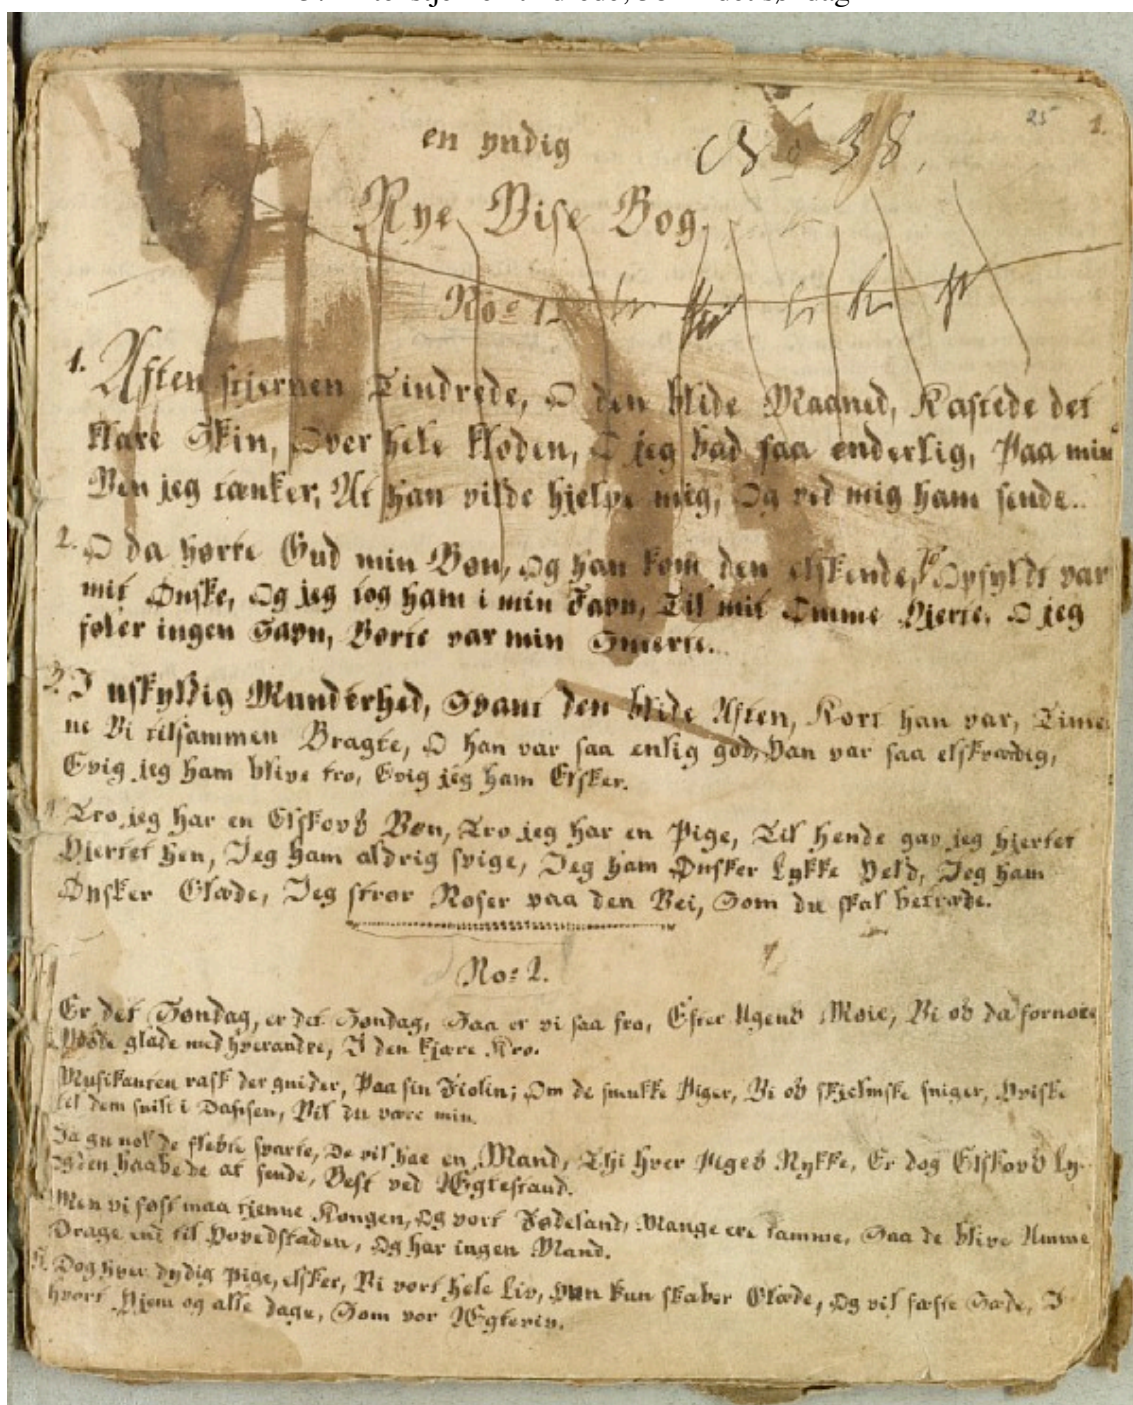 en yndig
No 38.
25 1.
Nye Vise Bog.
No: 1.
1. Aften stjernen Tindrede, O den blide Maaned, Kastede det
klare Skin, Over hele kloden, O jeg bad saa enderlig, Paa min
Ven jeg tænker, At han vilde hjelpe mig, Og ved mig ham sende..
2. O da hørte Gud min Bøn, Og han kom den elskende, Opfyldt var
mit Ønske, Og jeg tog ham i min Favn, Til mit Ømme Hjerte. O jeg
føler ingen Savn, Borte var min Smerte..
3. I uskyldig Munterhed, Svant den blide Aften, Kort han var, Time
ne Vi tilsammen Bragte, O han var saa enlig god, Han var saa elskværdig,
Evig jeg ham blive tro, Evig jeg ham Elsker.
4. Tro jeg har en Elskovs Bøn, Tro jeg har en Pige, Til hende gav jeg hjertet
Hjertet hen, Jeg ham aldrig svige, Jeg ham Ønsker Lykke Held, Jeg ham
Ønsker Glæde, Jeg strør Roser paa den Vei, Som du skal betræde.
No: 2.
Er det Søndag, er det Søndag, Saa er vi saa fro, Efter Ugens Møie, Vi os da fornøie
glade med hverandre, I den kjære Kro.
Musikanten rask der gnider, Paa sin Fiolin; Om de smukke Piger, Vi os skjelmske sniger, Hviske
til dem snilt i Dansen, Vil du være min.
Ja gu nok de fleste svarte, De vil hae en Mand, Thi hver Piges Nykke, Er dog Elskovs Ly-
haabede at sende, Best ved Ægtestand.
Men vi føst maa tjenne Kongen, Og vort Fødeland, Mange ere tamme, Saa de blive Amme
Drage ind til Hovedstaden, Og har ingen Mand.
5. Dog hver dydig Pige, elsker, Vi vort hele Liv, Hun kun skaber Glæde, Og vil fæste Sæde, I
hvort Hjem og alle dage, Som vor Ægteviv.